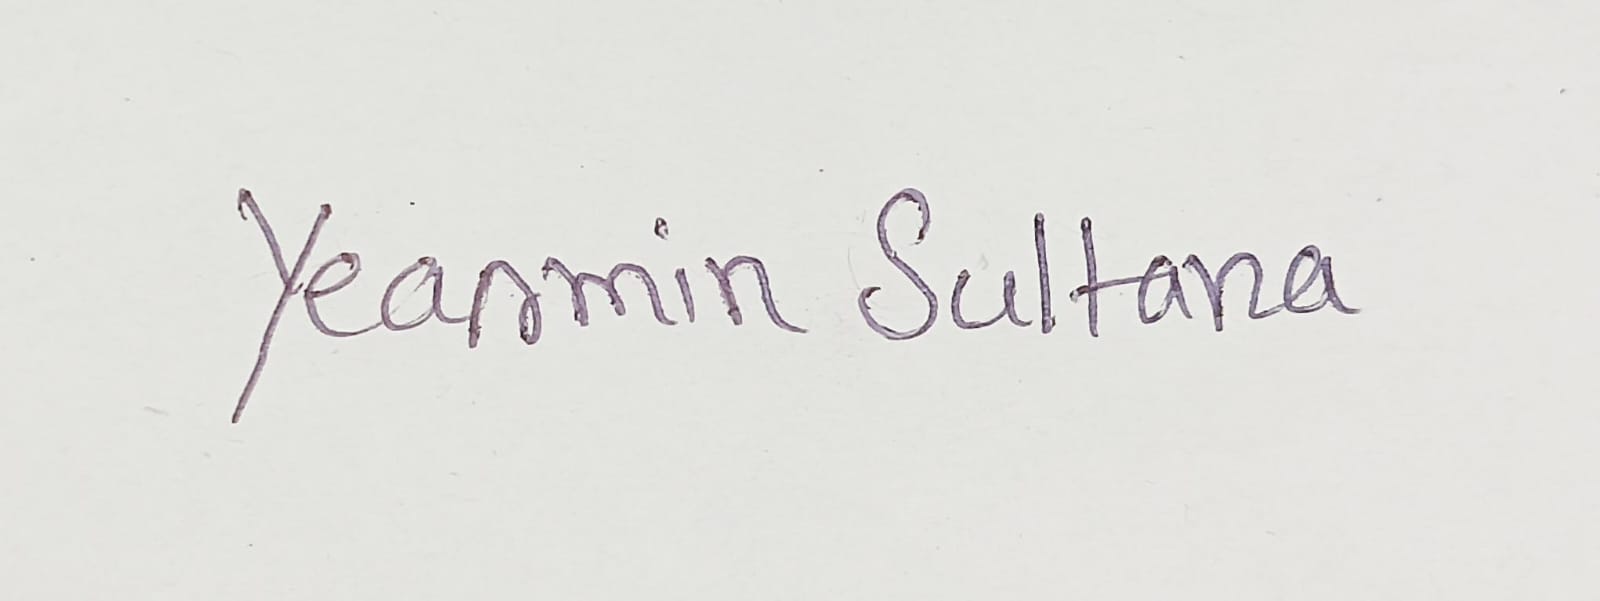 Yeasmin Sultana